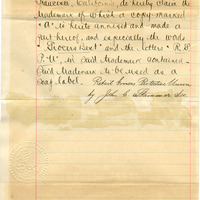 Francisco, California, do hereby claim the
trademark of which a copy marked
"A" is hereto annexed and made a
part hereof, and especially the words
"Grocers Best" and the letters "R. G.
P. U." in said trademark contained.
Said trademark to be used as a
soap label. Retail Grocers Protective Union
by John C.